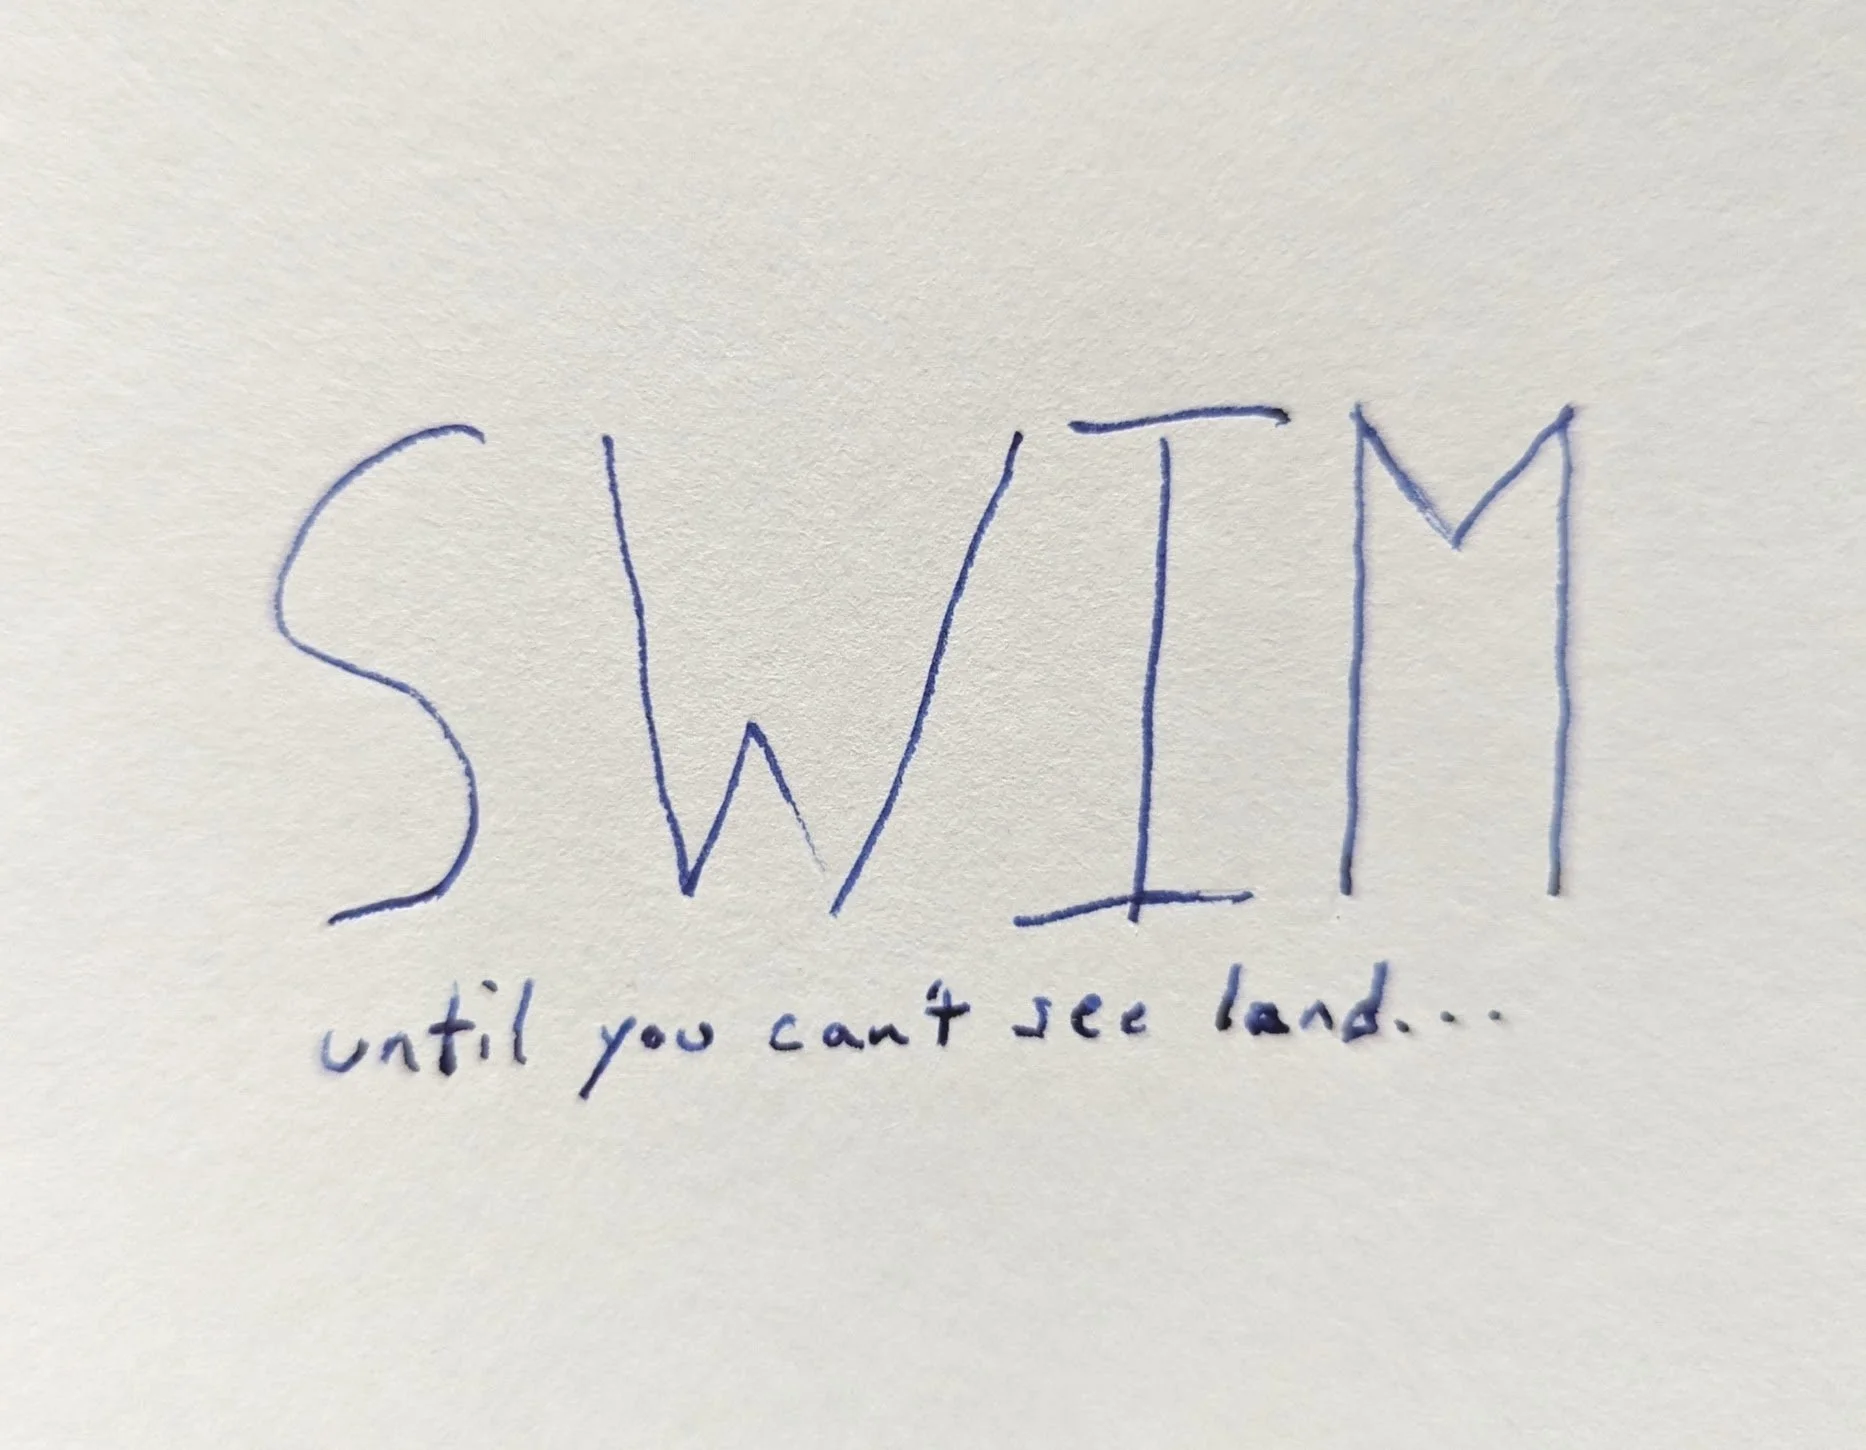 SWIM
until you can't see land...